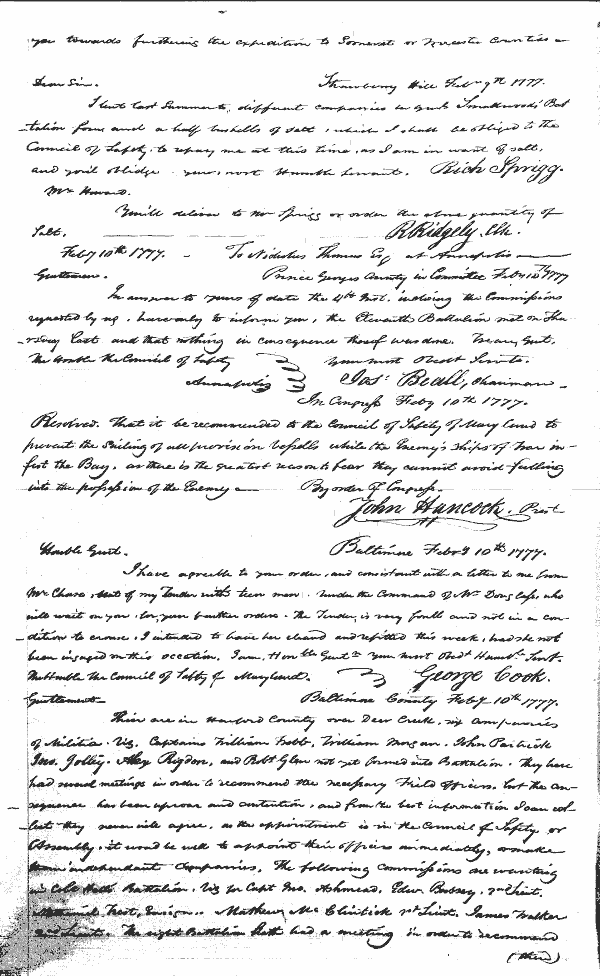 you towards furthering the expedition to Somerset or Worcester Counties
Dear Sir. Strawberry Hill Feby 9th 1777.
I lent last Summer to different companies in Smallwoods Bat
talion four and a half bushells of salt, which I shall be obliged to the
Council of Safety to repay me at this time, as I am in want of salt,
and you'll oblidge your, most Humble Servant. Rich Sprigg.
Mr Howard.
You'll deliver to Mr Sprigg or order the above quantity of
Salt. R Ridgely, Clk.
Feby 10th 1777. To Nicholas Thomas Esq at Annapolis
Gentlemen. Prince Georges County in Committee Feby 10th 1777
In answer to yours of date the 4th Inst. inclosing the Commissions
requested by us, have only to inform you, the Eleventh Battalion met on Thu
rsday last and that nothing in consequence thereof was done. We are, Gent.
The Honble the Council of Safety your most Obedt Servts.
Annapolis Jos: Beall, Chairman
In Congress Feby 10th 1777.
Resolved. That it be recommended to the Council of Safety of Maryland to
prevent the Sailing of all provision Vessells while the Enemy's Ships of War in-
fest the Bay, as there is the greatest reason to fear they cannot avoid falling
into the possession of the Enemy By order of Congress.
John Hancock. Prest
Honble Gent. Baltimore Feby 10th 1777.
I have agreeable to your order, and consistent with a letter to me from
Mr Chase, sent of my Tender with men under the Command of Mr Doug who
will wait on you for your further orders. The Tender, is very foul and not in a con-
dition to cruise, I intended to have her cleand and refitted this week, had she not
been ingaged on this occation. I am, Honble Gentn your most Obedt Humble Servt.
The Honble the Council of Safety of Maryland. George Cook.
Gentlemen Baltimore County Feby 10th 1777.
There are in Harford County over Deer Creek, six companies
of Militia. Viz. Captains William Webb, William Morgan. John Patrick
Jno. Jolley, Alex Rigdon, and Robt Glen not yet formed into Battalion. They have
had several meetings in order to recommend the necessary Field Officers, but the con-
sequence has been uproar and contention, and from the best information I can col-
lect they never will agree, as the appointment is in the Council of Safety, or
Assembly, it would be well to appoint their officers immediately, or make
them independant Companies. The following Commissions are wanting
in Cols Battalion. Viz for Capt Jno. Ashmead. Edwr 2nd Lieut.
Ensign. Mathew Mc 1st Lieut. James Walker
2nd Lieut. The eight Battalion had a meeting in order to recommend
(their)